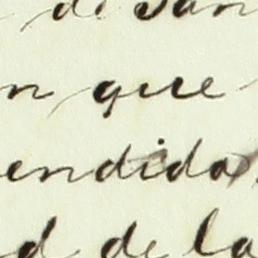 di San
n que
endida
d de la